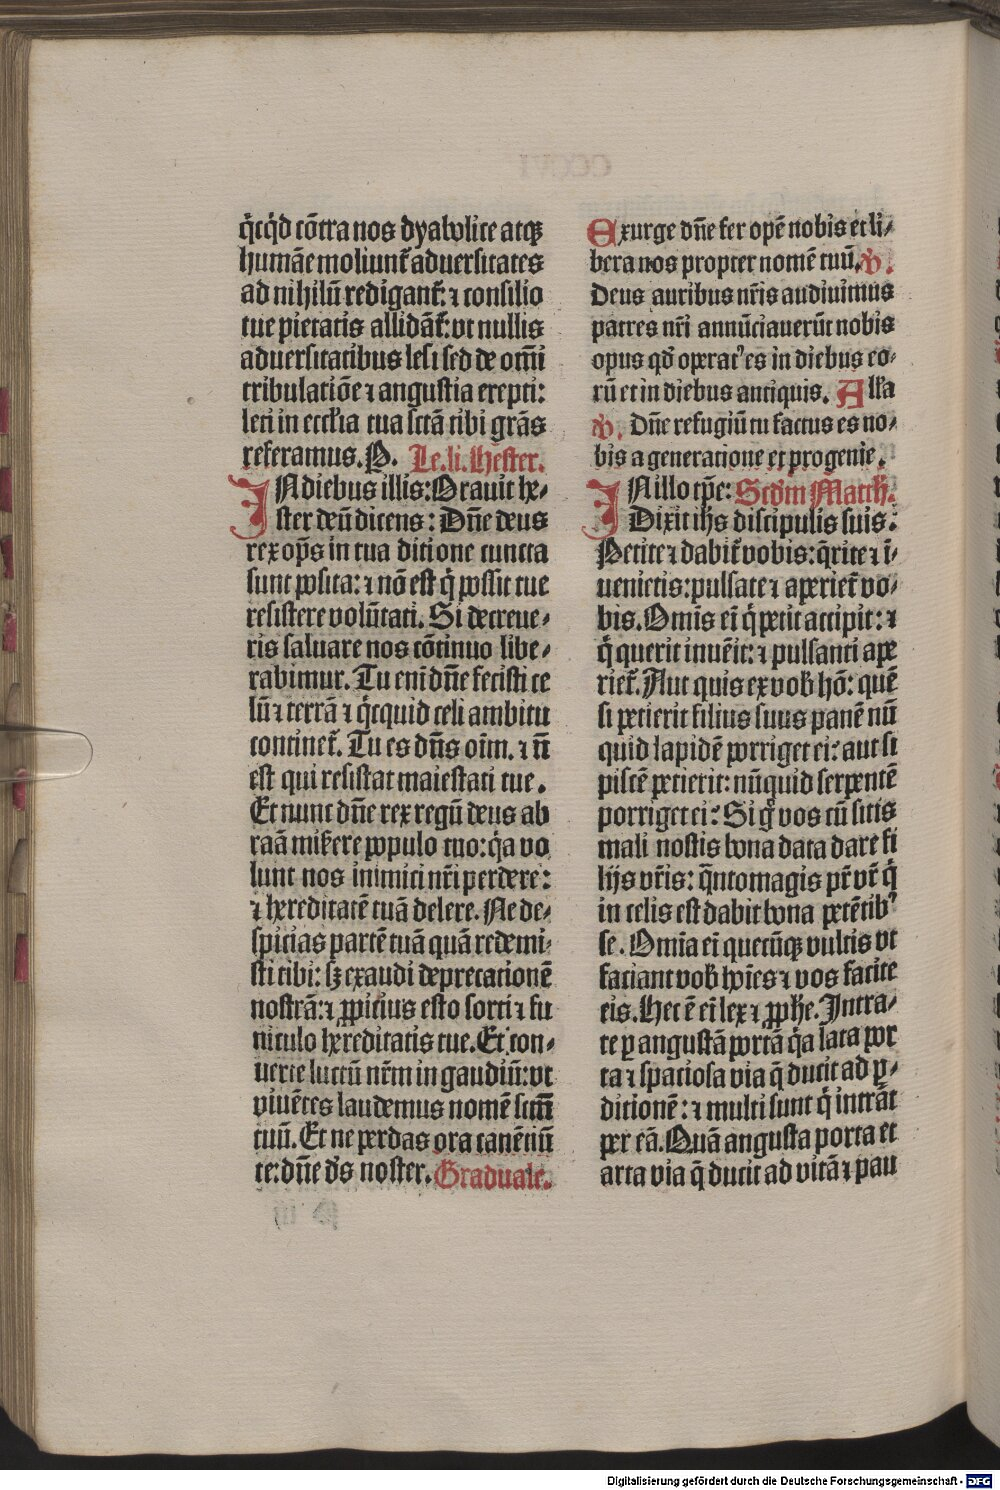 q̇cq̇d cōtra nos dyabolice atqꝫ
humāe moliunt᷑ aduersitates
ad nihilū redigant᷑: ⁊ consilio
tue pietatis allidāt᷑: vt nullis
aduersitatibus lesi sed de om̄i
tribulatiōe ⁊ angustia erepti:
leti in eccłia tua sctā tibi grās
referamus. P. Le. li. Hester.
IN diebus illis: Orauit he⸗
ster deū dicens: Dn̄e deus
rex op̄s in tua ditione cuncta
sunt posita: ⁊ nō est q̇ possit tue
resistere volūtati. Si decreue⸗
ris saluare nos cōtinuo libe⸗
rabimur. Tu eni dn̄e fecisti ce
lū ⁊ terrā ⁊ q̇cquid celi ambitu
continet᷑. Tu es dn̄s oīm. ⁊ n̄
est qui resistat maiestati tue.
Et nunc dn̄e rex regū deus ab
raā miẜere populo tuo: q̇a vo
lunt nos inimici nr̄i perdere:
⁊ hereditatē tuā delere. Ne de⸗
spicias partē tuā quā redemi⸗
sti tibi: sꝫ exaudi deprecationē
nostrā: ⁊ ꝓpicius esto sorti ⁊ fu
niculo hereditatis tue. Et con⸗
uerte luctū nr̄m in gaudiū: vt
viuētes laudemus nomē scm̄
tuū. Et ne perdas ora canētiū
te: dn̄e ds̄ noster. Graduale.
Exurge dn̄e fer opē nobis et li⸗
bera nos propter nomē tuū. ꝟ.
Deus auribus nr̄is audiuimus
patres nr̄i annūciauerūt nobis
opus qd̄ operatꝰ es in diebus eo⸗
rū et in diebus antiquis. Alła
ꝟ. Dn̄e refugiū tu factus es no⸗
bis a generatione et progenie.
IN illo tp̄e: Scd̄m Matth̄.
Dixit ih̄s discipulis suis:
Petite ⁊ dabit᷑ vobis: q̄rite ⁊ ī⸗
uenietis: pulsate ⁊ aperiet᷑ vo⸗
bis. Omīs ei̅ q̇ petit accipit: ⁊
q̇ querit inuēit: ⁊ pulsanti ape
riet᷑. Aut quis ex vob̄ hō: quē
si petierit filius suus panē nū
quid lapidē porriget ei: aut si
piscē petierit: nūquid serpentē
porriget ei? Si g̊ vos cū sitis
mali nostis bona data dare fi
lijs vr̄is: q̄ntomagis pr̄ vr̄ q̇
in celis est dabit bona petētibꝰ
se. Omīa ei̅ quecūqꝫ vultis vt
faciant vob̄ hoīes ⁊ vos facite
eis. Hec ē ei̅ lex ⁊ ꝓphe. Intra⸗
te ꝑ angustā portā q̇a lata por
ta ⁊ spaciosa via q̄ ducit ad ꝑ⸗
ditionē: ⁊ multi sunt q̇ intrāt
per eā. Quā angusta porta et
arta via q̄ ducit ad vitā ⁊ pau
Digitalisierung gefördert durch die Deutsche Forschungsgemeinschaft - DFG